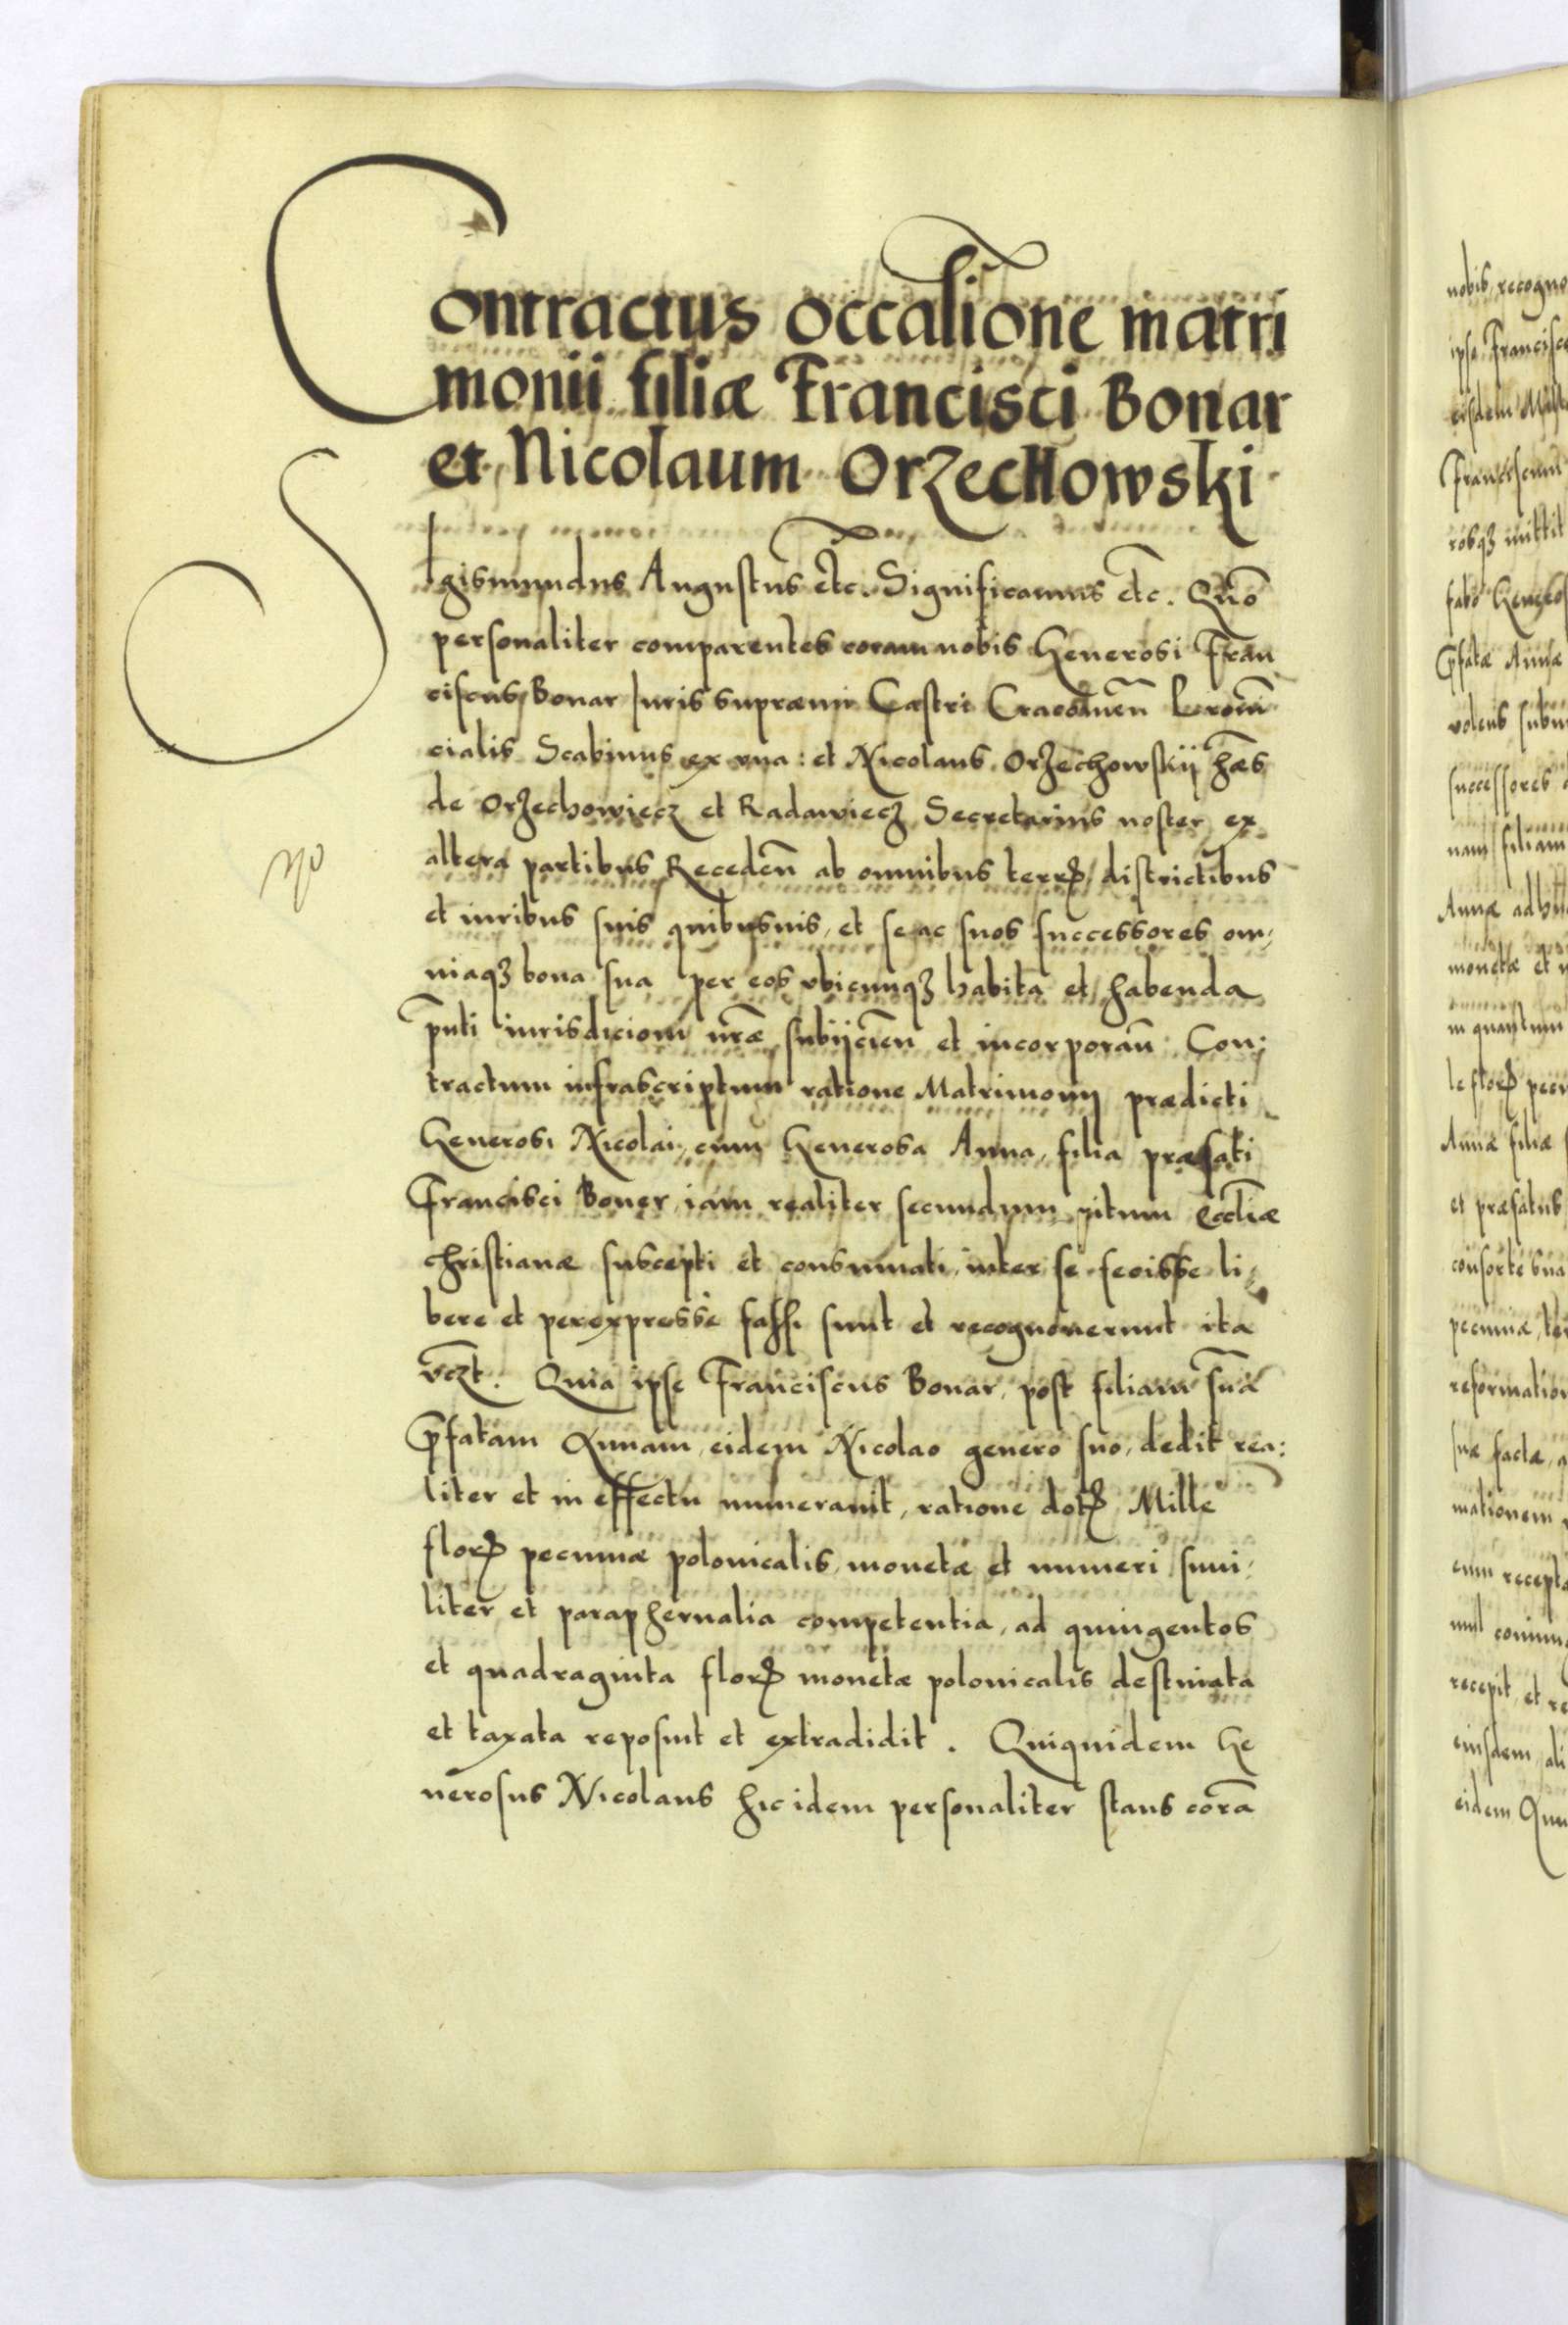 Contractus occasione matri
monii filiæ Francisci Bonar
et Nicolaum Orzechowski
Sigismundus Augustus etc. Significamus etc. Quō
personaliter comparentes coram nobis Generosi Fran
ciscus Bonar Iuris supræmi Castri Cracovieñ Provin̄
cialis Scabinus ex vna: et Nicolaus Orzechowskij hæs
de Orzechowiecz et Radawiecz Secretarius noster ex
altera partibus Recedeñ ab omnibus terrꝝ districtibus
et iuribus suis quibusuis, et se ac suos successores om,
niaqꝫ bona sua per eos vbicunqꝫ habita et habenda
pñti iurisdicioni nr̄æ subijcieñ et incorporañ Con,
tractum infrascriptum ratione Matrimonij prædicti
Generosi Nicolai, cum Generosa Anna, filia præfati
Francisci Boner, iam realiter secundum ritum Eccl̄iæ
christianæ suscepti et consumati inter se fecisse li,
bere et perexpressè fassi sunt et recognouerunt ita
vcꝫt. Quia ipse Franciscus Bonar, post filiam suā
p̄fatam Annam, eidem Nicolao genero suo, dedit rea:
liter et in effectu numerauit, ratione dotꝭ Mille
florꝭ pecuniæ polonicalis, monetæ et numeri simi,
liter et paraphernalia competentia, ad quingentos
et quadraginta florꝭ monetæ polonicalis destinata
et taxata reposuit et extradidit. Quiquidem Ge
nerosus Nicolaus hic idem personaliter stans corā
nobis recogno
ipse Francisc
Franciscum
robqꝫ mittit
p̄fatæ Annæ
volens subm
successores
nam filiam
Annæ adhu
monetæ et
in quantum
Annæ filiæ
et præfatus
pecuniæ
reformation
suæ factæ, a
mationem
cum recepto
recepit, et re
eiusdem, ali
eidem Ann